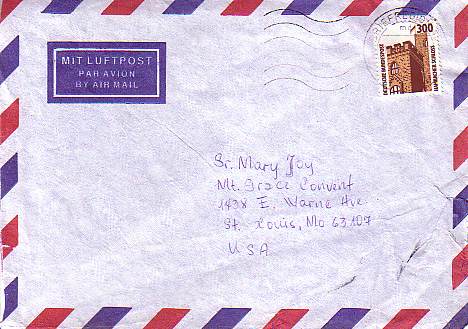 MIT LUFTPOST
PAR AVION
BY AIR MAIL
300
DEUTSCHE BUNDESPOST
HAMBACHER SCHLOSS
Sr. Mary Joy
Mt. Grace Convent
1438 E. Warne Ave.
St. Louis, Mo 63107
USA